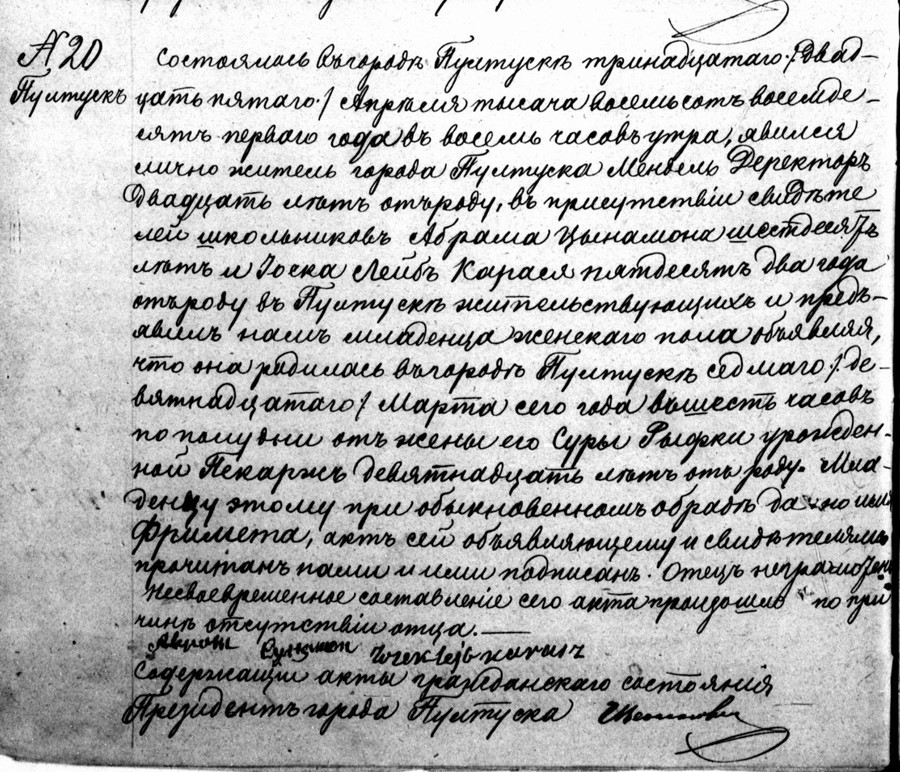 N 20
Пултускъ
Состоялась въ городѣ Пултускѣ тринадцатаго /двад-
цать пятаго/ Апрѣля тысяча восемьсотъ восемде-
сятъ перваго года въ восемь часовъ утра, явился
лично житель города Пултуска Мендель Деректоръ
двадцать лѣтъ отъ роду, въ присутствіи свидѣте
лей школьниковъ Абрама Цынамона шестдесятъ
лѣтъ и Іоска Лейбъ Карася пятдесятъ два года
отъ роду въ Пултускѣ жительствующихъ и предъ-
явилъ намъ младенца женскаго пола объявляя,
что она родилась въ городѣ Пултускѣ седмаго /де-
вятнадцатаго/ Марта сего года въ шесть часовъ
по полудни отъ жены его Суры Рыфки урожден-
ной Пекаржъ девятнадцать лѣтъ отъ роду. Мла-
денцу этому при обыкновенномъ обрядѣ дано имя
Фримета, актъ сей объявляющему и свидѣтелямъ
прочитанъ нами и ими подписанъ. Отецъ неграмотенъ.
Несвоевременное составленіе сего акта произошло по при
чинѣ отсутствіи отца.
Josek Lejb Karaś
Содержащій акты гражданскаго состоянія
Президентъ города Пултуска